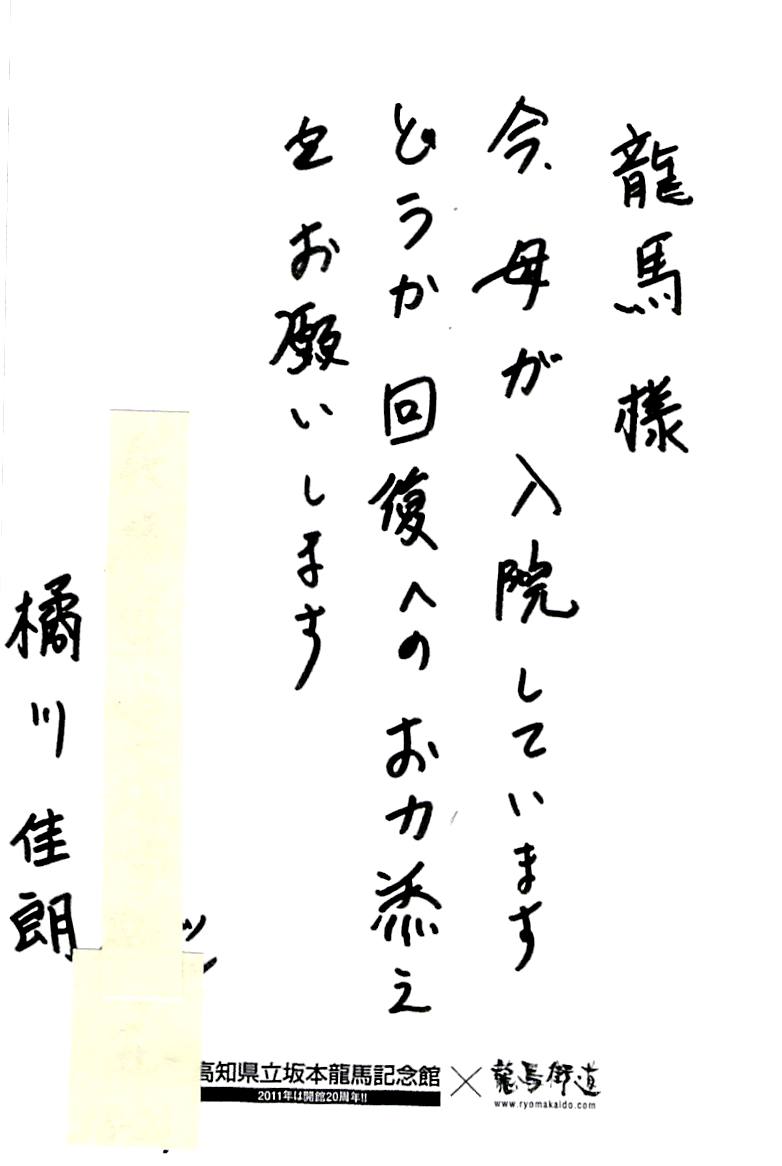 龍馬様
今、母が入院しています
どうか回復へのお力添え
をお願いします
橘川佳朗
高知県立坂本龍馬記念館×龍馬街道
2011年は開館20周年!!
www.ryomakaido.com